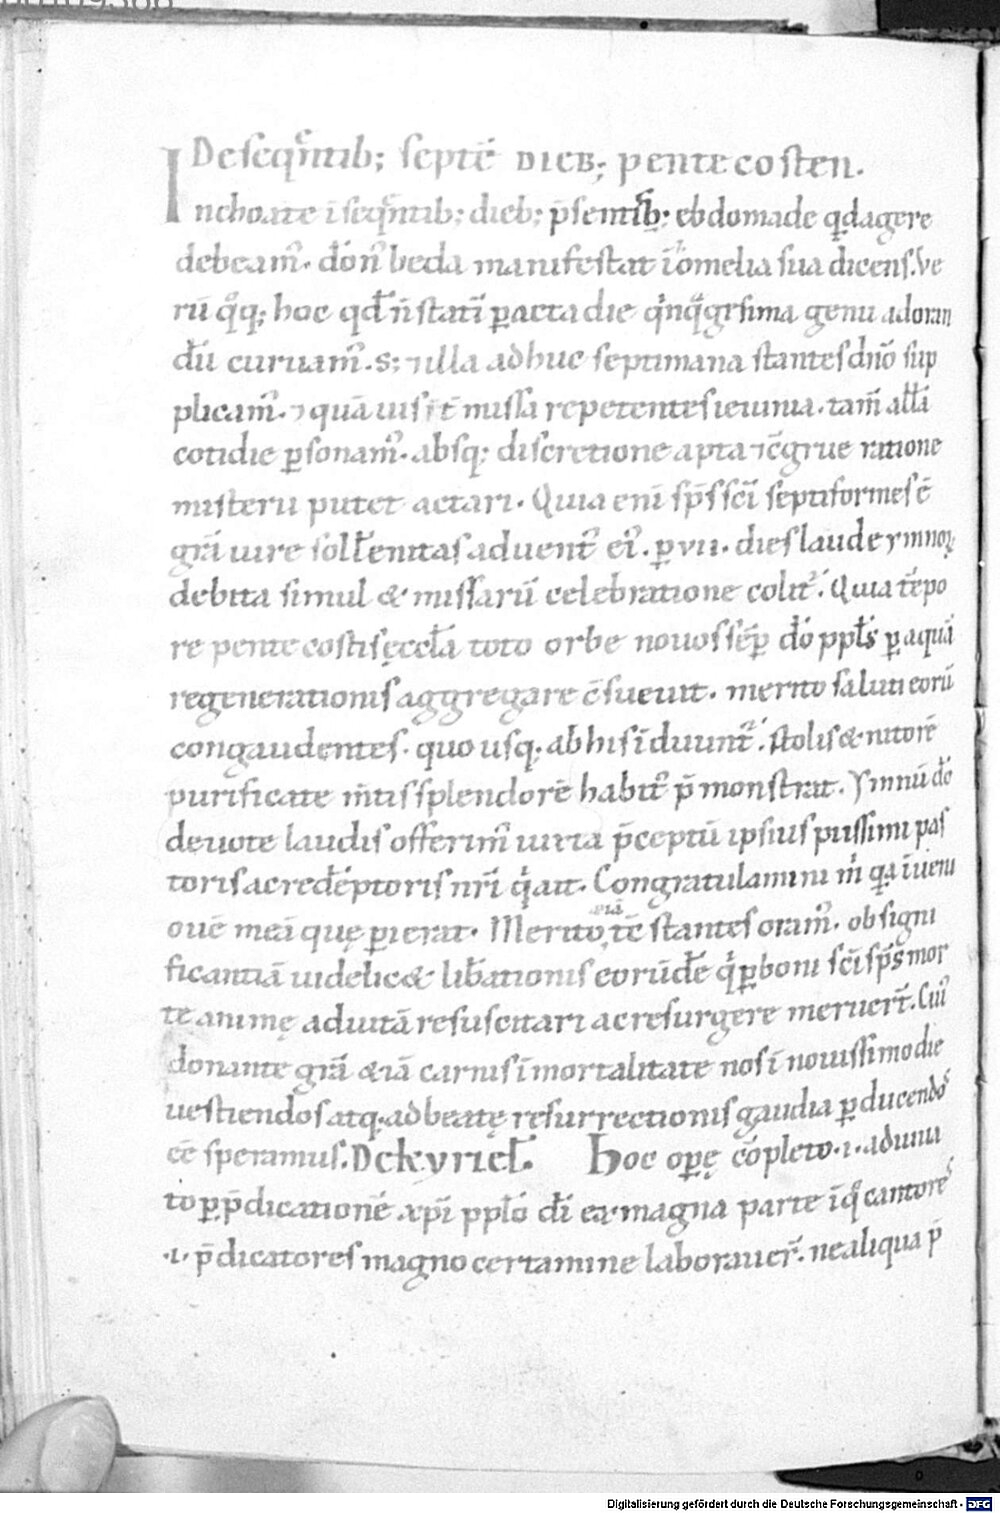 De seqͣntib; septē DIEB; pentecosten.
Inchoate ī seqͣntib; dieb; p̄sentib; ebdomade qͥd agere
debeam᷒. dōn᷒ beda manifestat ī omelia sua dicens. Ve
rū qͦq; hoc qđ n̄ statī ꝑacta die qͥnqͣgesima genu adoran
dū curuam᷒. S; ⁊ illa adhuc septimana stantes dn̄o sup
plicam᷒. ⁊ quāuis īt̄ missa repetentes ieiunia. tam̄ alła
cotidie ꝑsonam᷒. absq; discretione apta ⁊ c̄grue ratione
misterii putet actari. Quia enī sp̄s sc̄i septiformes ē
grā iure sollēnitas aduent᷒ ei᷒. ꝑ vii. dies laude ymnoꝝ
debita simul & missarū celebratione colit᷒. Quia tēpo
re pentecostis ęccła toto orbe nouos sēꝑ dō ppłs ꝑ aquā
regenerationis aggregare c̄sueuit. merito saluti eorū
congaudentes. quousq; ab his īduunt᷒. stolis & nitorē
purificate m̄tis splendorē habit᷒ p̄monstrat. Ymnū dō
deuote laudis offerim᷒ iuxta p̄ceptū ipsius piissimi pas
toris ac redēptoris nr̄i qͥ ait. Congratulamini mͥ qͥa īueni
ouē meā quę perierat. Merito etiā tc̄ stantes oram᷒. ob signi
ficantiā uidelic& lib̄ationis eorūdē qͥ ꝑ boni sc̄i sp̄s mor
te animę ad uitā resuscitari ac resurgere meruer̄t. Cui᷒
donante grā &iā carnis īmortalitate nos ī nouissimo die
uestiendos atq; ad beatę resurrectionis gaudia ꝑducendos
eē speramus. De kyrieł. Hoc opę cōpleto .i. aduna
to ꝑ p̄dicationē xp̄i ppło dī ex magna parte īqͥ cantores
.i. p̄dicatores magno certamine laborauer̄. ne aliqua p̄
Digitalisierung gefördert durch die Deutsche Forschungsgemeinschaft - DFG